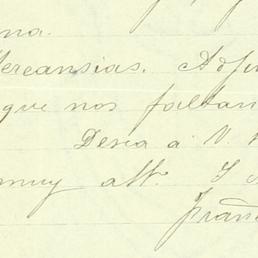 na.
ercansias. Adju
que nos faltan
Desea a V. 
muy att. S
Fran